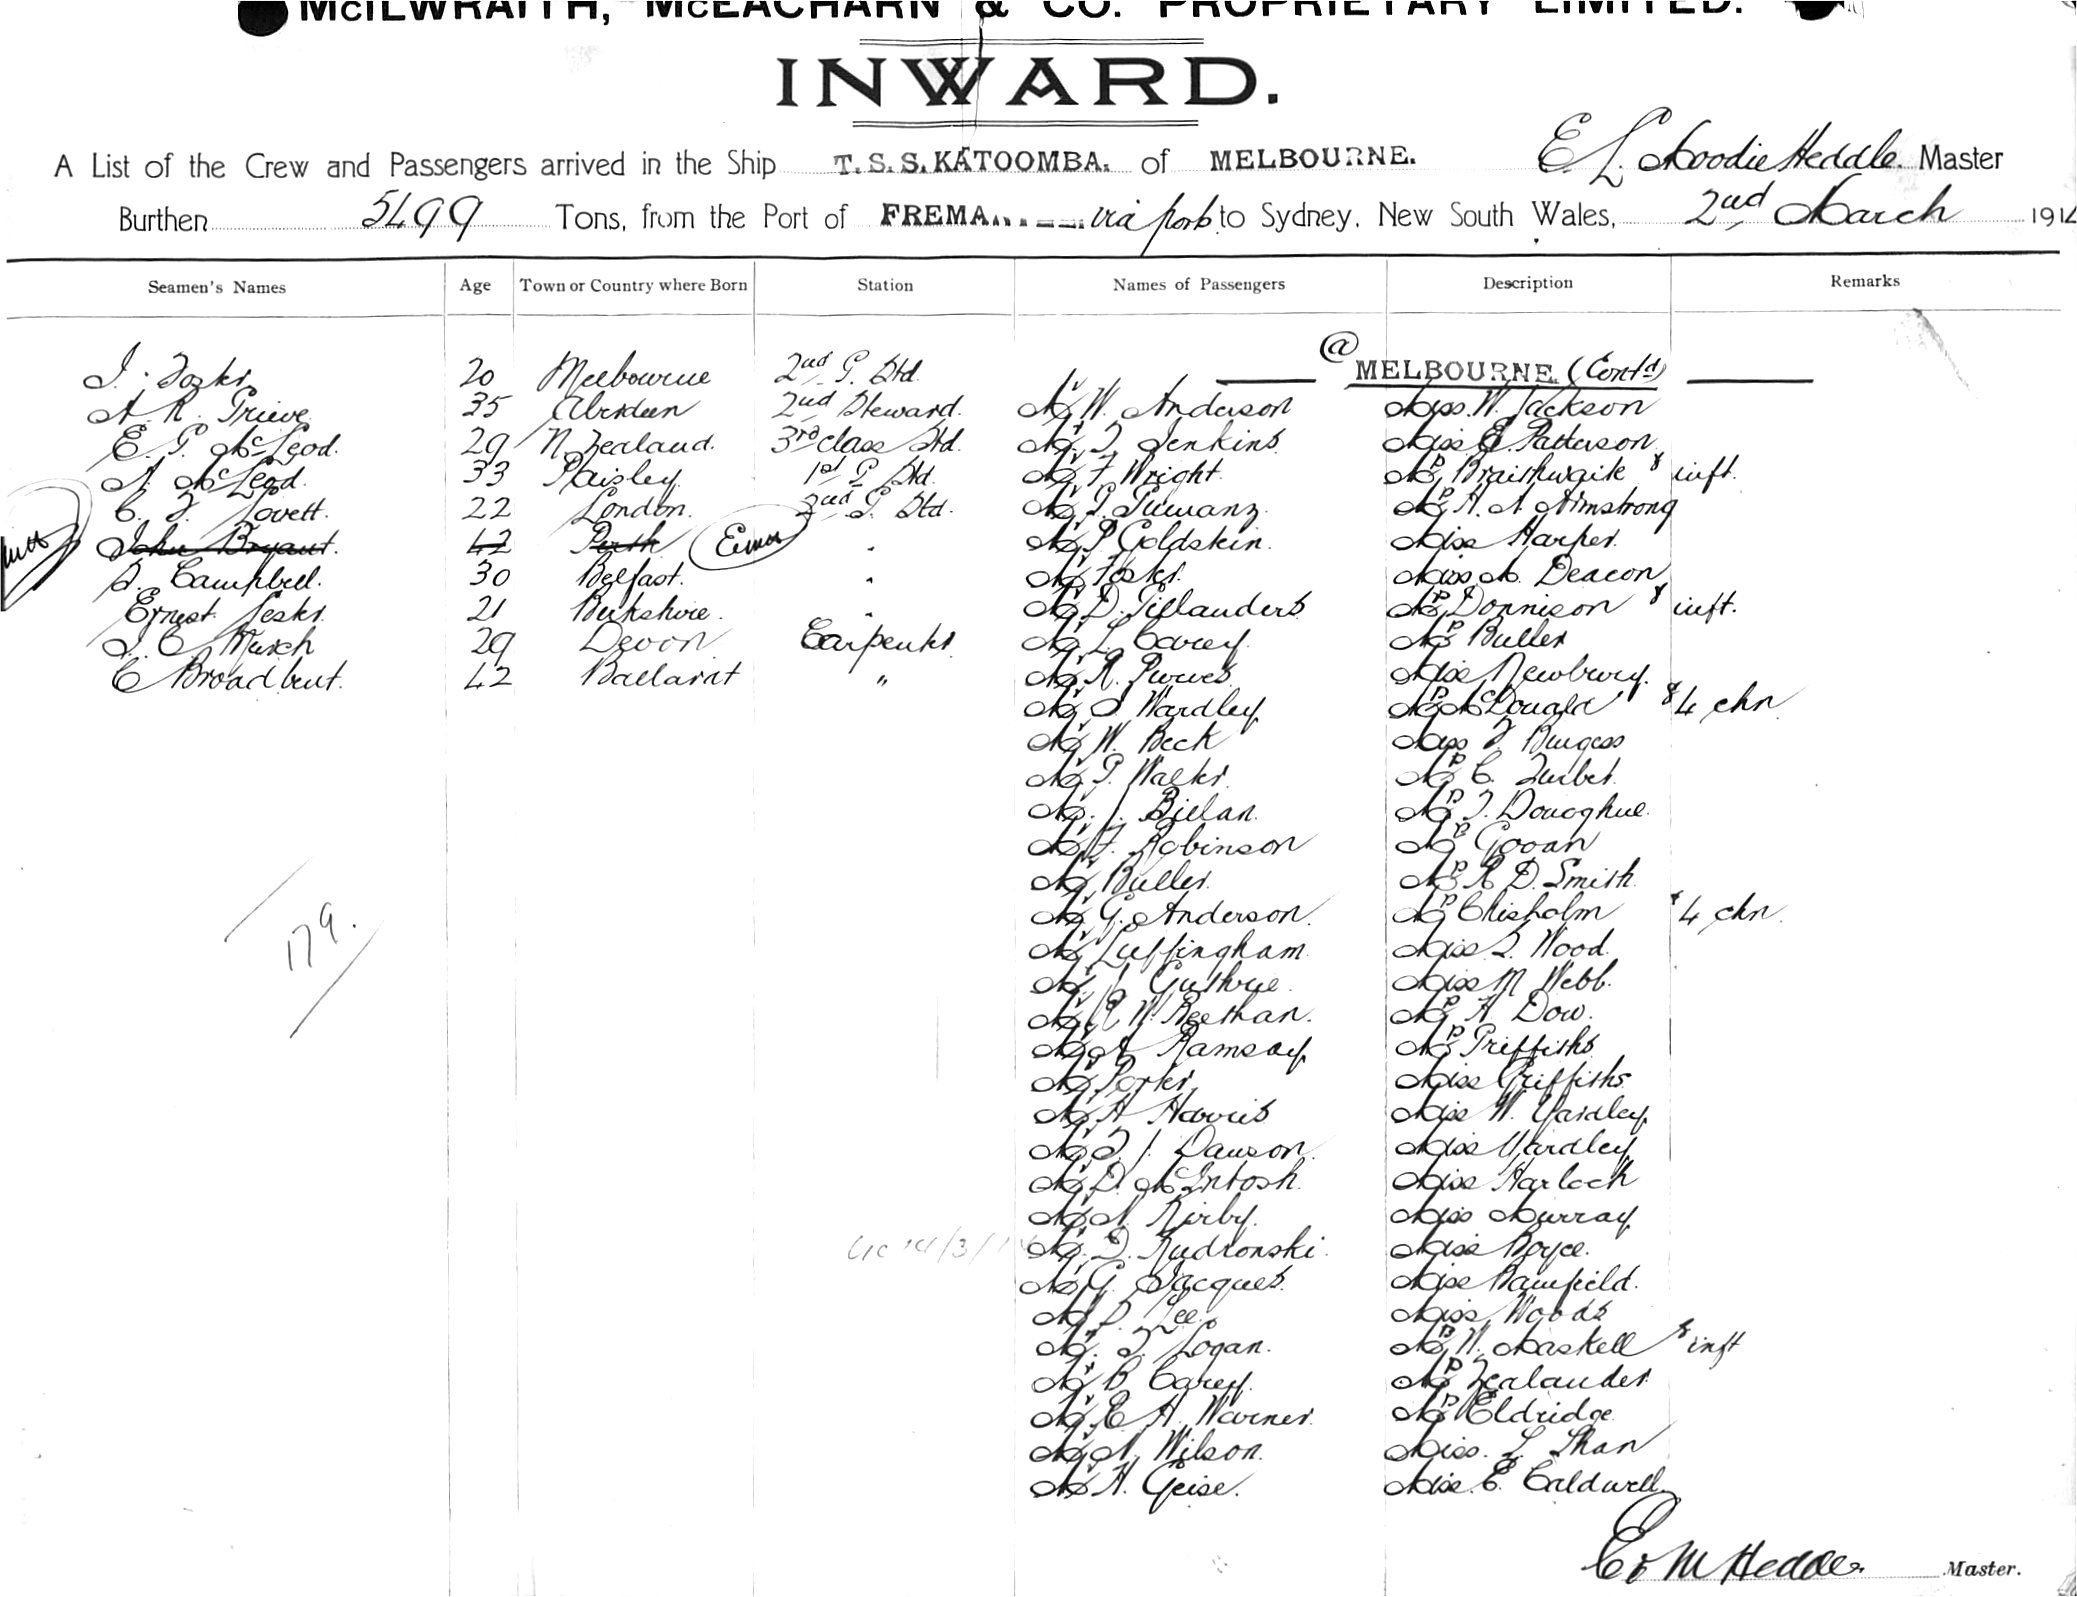 McILWRAITH, McEACHARN & CO. PROPRIETARY LIMITED.
INWARD.
A List of the Crew and Passengers arrived in the Ship T.S.S. KATOOMBA. of MELBOURNE. E L Moodie Heddle. Master
Burthen 5499 Tons, from the Port of FREMA via ports to Sydney, New South Wales, 2nd March 191
Seamen's Names Age Town or Country where Born Station Names of Passengers Description Remarks
@ MELBOURNE. (Contd)
20 Melbourne 2nd G. Std.
A R. Grieve 35 Aberdeen 2nd Steward. Mr W. Anderson Miss W. Jackson
E. G. McLeod. 29 N Zealand. 3rd class Std. Mr. J Jenkins Miss E Patterson
A. McLeod. 33 Paisley 1st G Std. Mr F Wright. Mrs Braithwaite & inft.
C. J. Lovett. 22 London. 2nd G. Std. Mrs H. A Armstrong
John Bryant. 42 Perth Error " Mr P Goldstein. Miss Harper.
Campbell. 30 Belfast. " Mr Foster. Miss M. Deacon
Ernest Lester 21 Berkshire. " Mr D. Gillanders Mrs Donnison & inft.
J. C. March 29 Devon Carpenter Mr L. Carey. Mrs Buller
C Broadbent. 42 Ballarat " Mr R. Purves Miss Newbury.
Mr S Wardley Mrs McDonald & 4 chn
Mr W. Beck Miss J Burgess
Mr G. Walker Mrs C.
Mr. J. Billan. Mrs J. Donoghue.
Mr F. Robinson Mrs Gooan
Mr Buller. Mrs R D. Smith.
Mr G. Anderson. Mrs Chisholm & 4 chn.
179.
Mr Luffingham Miss L. Wood.
Mr. J Guthrie. Miss M Webb.
Mr E W. Beethan. Mrs A Dow.
Mr A Ramsay Mrs Griffiths
Mr Porter Miss Griffiths
Mr H Harris Miss W. Yardley
Mr J J. Dawson. Miss Yardley
Mr D. McIntosh. Miss Harlock
Mr A. Kirby. Miss Murray
Mr. D. Kudronski. Miss Boyce.
Mr G. Jacques. Miss Bamfield.
Mr D. Lee. Miss Woods
Mr. J. Logan. Mrs W. Maskell & inft
Mr B Carey. Mrs Zealander
Mr E H. Warner. Mrs Eldridge
Mr A. Wilson. Miss. L. Shan
Mr H. Geise. Miss. E. Caldwell
E L M Heddle Master.